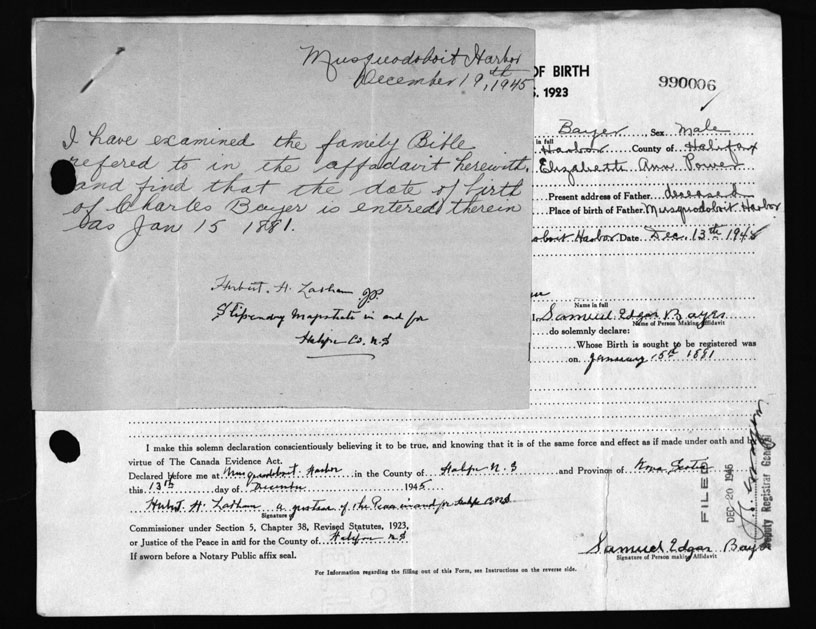 Musquodoboit Harbor
December 19th, 1945
I have examined the family Bible
refered to in the affadavit herewith,
and find that the date of birth
of Charles Bayer is entered therein
as Jan 15 1881.
Herbert. H. JP.
Stipendary Magistrate in and for
Halifx Co. N.S
OF BIRTH
S. 1923
990006
Bayer Sex Male
in full
Harbor County of Halifax
Elizabeth Ann Power
Present address of Father deceased
Place of birth of Father Musquodoboit Harbor
oboit Harbor Date Dec. 13th 1945
Name in full
I, Samuel Edgar Bayer
Name of Person Making Affidavit
do solemnly declare:
Whose Birth is sought to be registered was
on January 15th 1881
I make this solemn declaration conscientiously believing it to be true, and knowing that it is of the same force and effect as if made under oath and by
virtue of The Canada Evidence Act.
Declared before me at Musquodoboit Harbor in the County of Halifx N.S and Province of Nova Scotia
this 13th day of December 1945
Herbert. H. a Justice of the Peace in and for Halifx Co N.S
Signature
Commissioner under Section 5, Chapter 38, Revised Statutes, 1923,
or Justice of the Peace in and for the County of Halifax N S
If sworn before a Notary Public affix seal.
Samuel Edgar Bayer
Signature of Person making Affidavit
For Information regarding the filling out of this Form, see Instructions on the reverse side.
FILED
DEC 20 1945
Deputy Registrar General